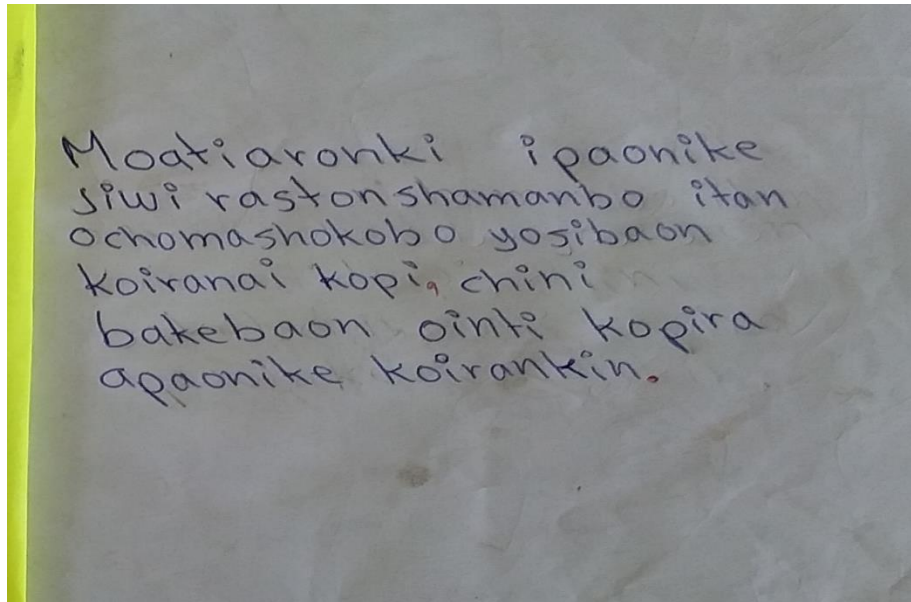 Moatiaronki ipaonike
siwi rastonshamanbo itan
ochomashokobo yosibaon
koiranai kopi, chini
bakebaon ointi kopira
apaonike koirankin.